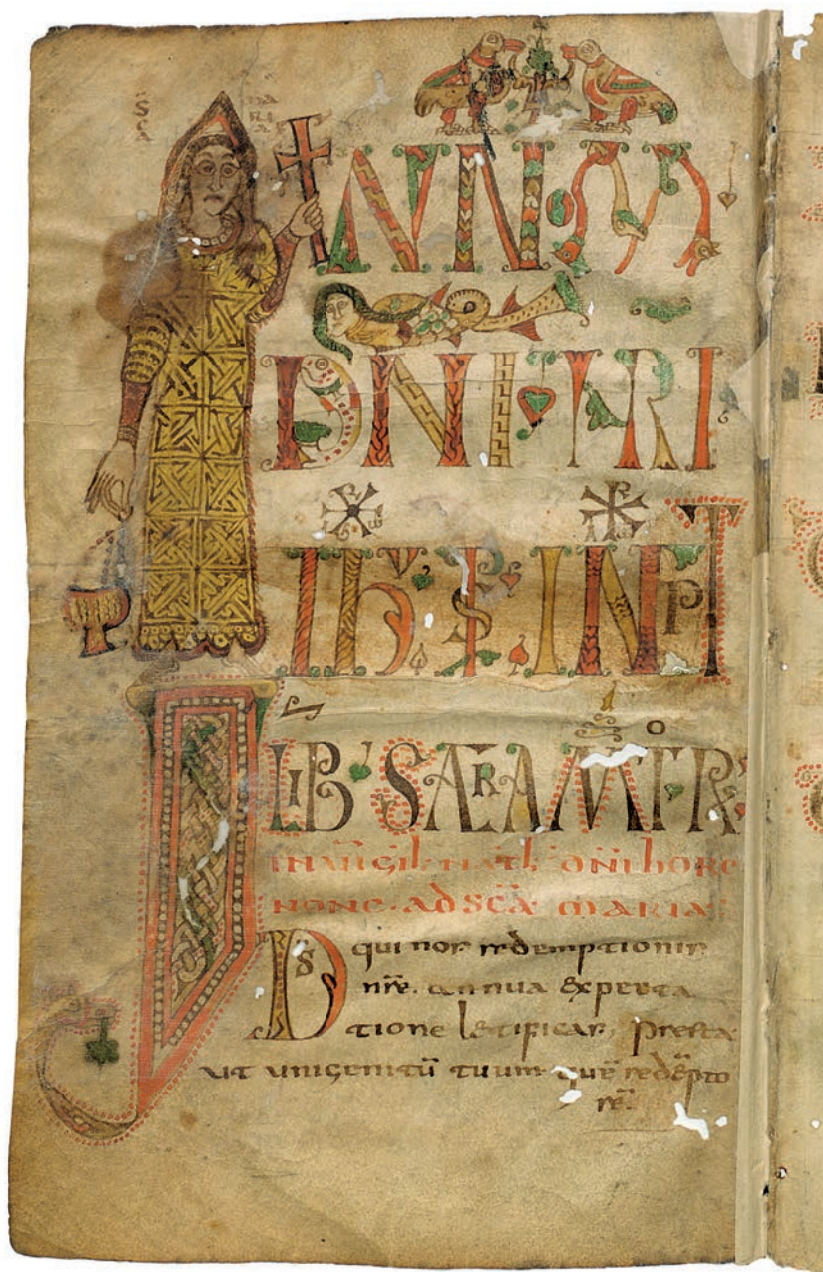 SCA MARIA
IN NOM
DNI NRI
IHV XPI INCPT
LIB SACRAM
IN UIGIL NATL DNI HORE
NONE · AD SCA MARIA
Ds qui nos redemptionis
nre. annua expecta
tione letificas, Presta
ut unigenitū tuum quē redēpto
rē.